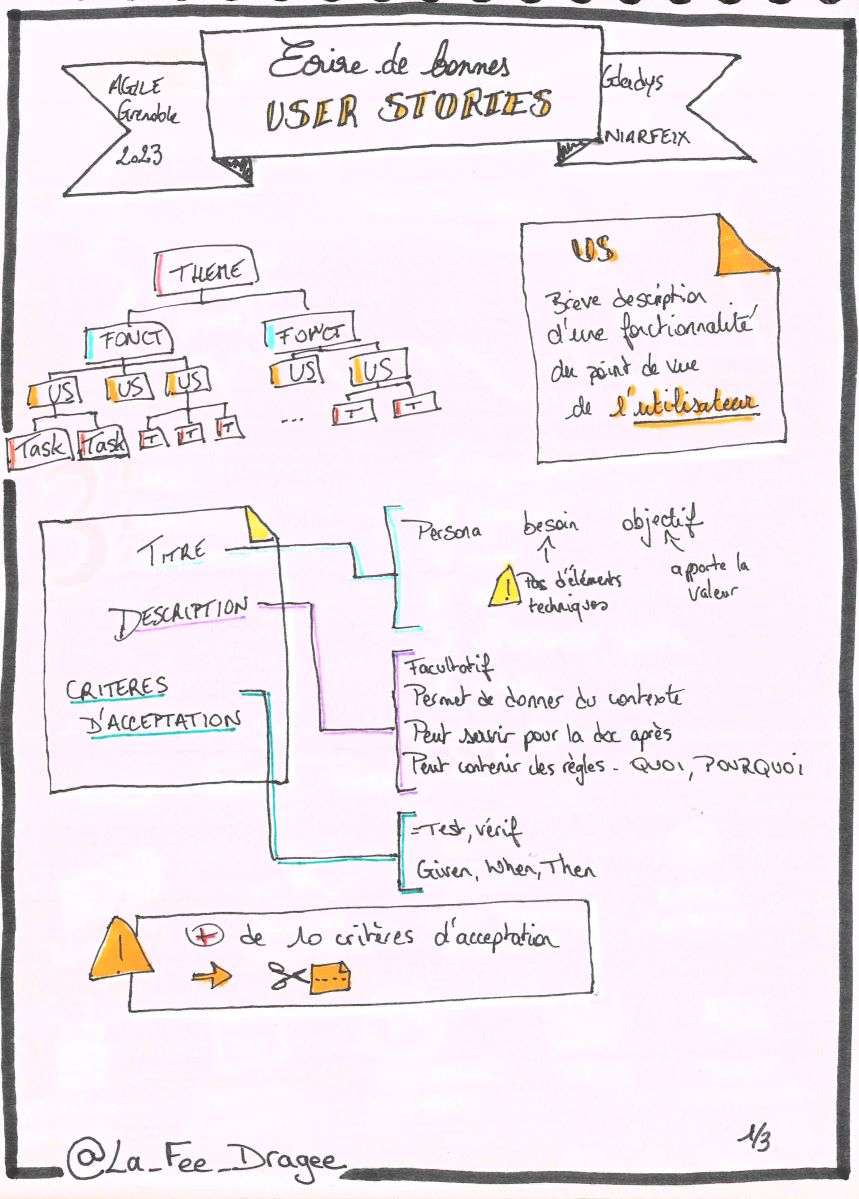 AGILE
Grenoble
2023
Ecrire de bonnes
USER STORIES
Gladys
NIARFEIX
THEME
FONCT
FONCT
US
US
US
US
US
Task
Task
T
T
T
...
T
T
US
Brève description
d'une fonctionnalité
du point de vue
de l'utilisateur
TITRE
DESCRIPTION
CRITERES
D'ACCEPTATION
Persona besoin objectif
! Pas d'éléments
techniques
apporte la
valeur
Facultatif
Permet de donner du contexte
Peut servir pour la doc après
Peut contenir des règles - QUOI, POURQUOI
=Test, vérif
Given, When, Then
! + de 10 critères d'acceptation
@La_Fee_Dragee
1/3